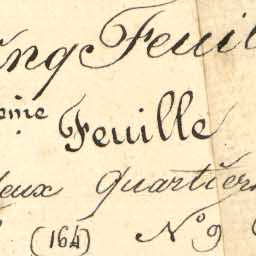 inq Feuil
eme Feuille
deux Quartiers
(164) N° 9